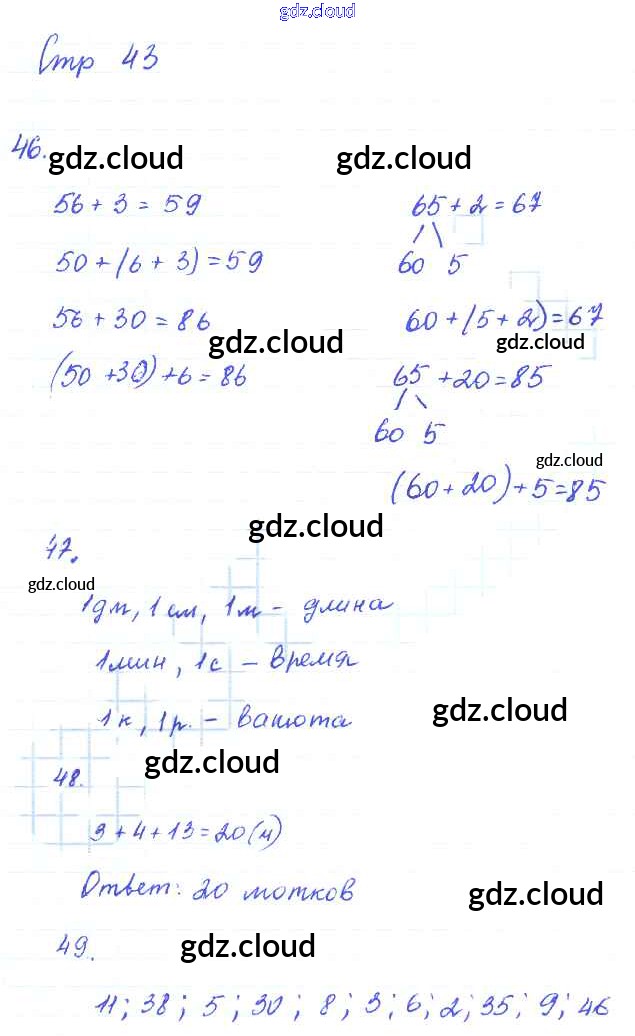 gdz.cloud
Стр 43
46.
gdz.cloud gdz.cloud
56 + 3 = 59 65 + 2 = 67
50 + (6 + 3) = 59 60 5
56 + 30 = 86 60 + (5 + 2) = 67
gdz.cloud gdz.cloud
(50 + 30) + 6 = 86 65 + 20 = 85
60 5
gdz.cloud
(60 + 20) + 5 = 85
gdz.cloud
47.
gdz.cloud
1 дм, 1 см, 1 м - длина
1 мин, 1 с - время
1 к, 1 р. - валюта gdz.cloud
gdz.cloud
48.
3 + 4 + 13 = 20 (м)
Ответ: 20 мотков gdz.cloud
49. gdz.cloud
11; 38; 5; 30; 8; 3; 6; 2; 35; 9; 46